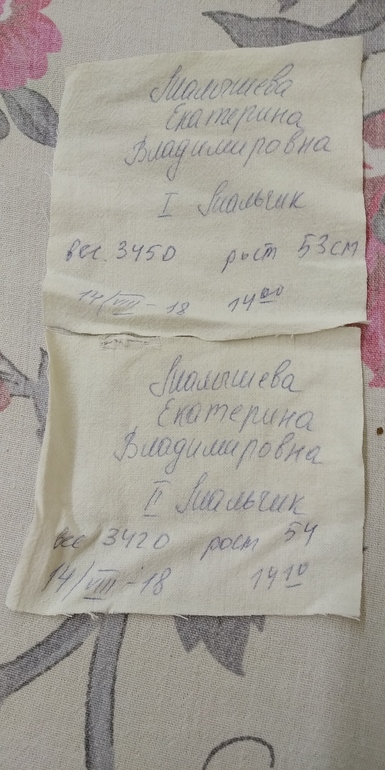 Малышева
Екатерина
Владимировна
I Мальчик
вес. 3450 рост 53 см
14/VIII - 18 14⁰⁰
Малышева
Екатерина
Владимировна
II Мальчик
вес 3420 рост 54
14/VIII - 18 14¹⁰